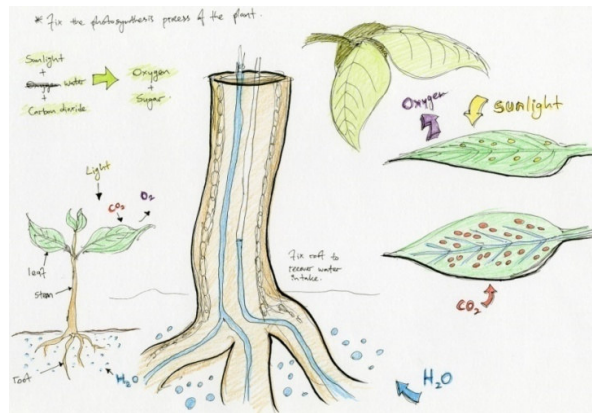 * Fix the photosynthesis process of the plant.
Sunlight
+
Oxygen Water
+
Carbon dioxide
Oxygen
+
Sugar
Oxygen
Sunlight
Light
CO2
O2
leaf
stem
root
H2O
Fix root to
recover water
intake.
CO2
H2O